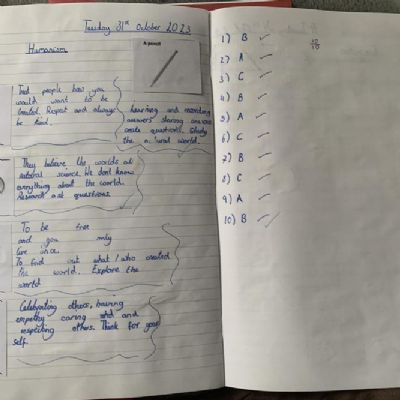 Tuesday 31st October 2023
Humanism
A pencil
Treat people how you
would want to be
treated. Respect and always
be kind.
learning and recording
answers sharing answers
create questions. Study
the natural world.
They believe the worlds of
natural science. We don't know
everything about the world.
Research and questions.
To be free
and you only
live once.
To find out what / who created
the world. Explore the
world
Celebrating others, having
empathy caring and
respecting others. Think for your
self.
1) B
2) A
3) C
4) B
5) A
6) C
7) B
8) C
9) A
10) B
10
10